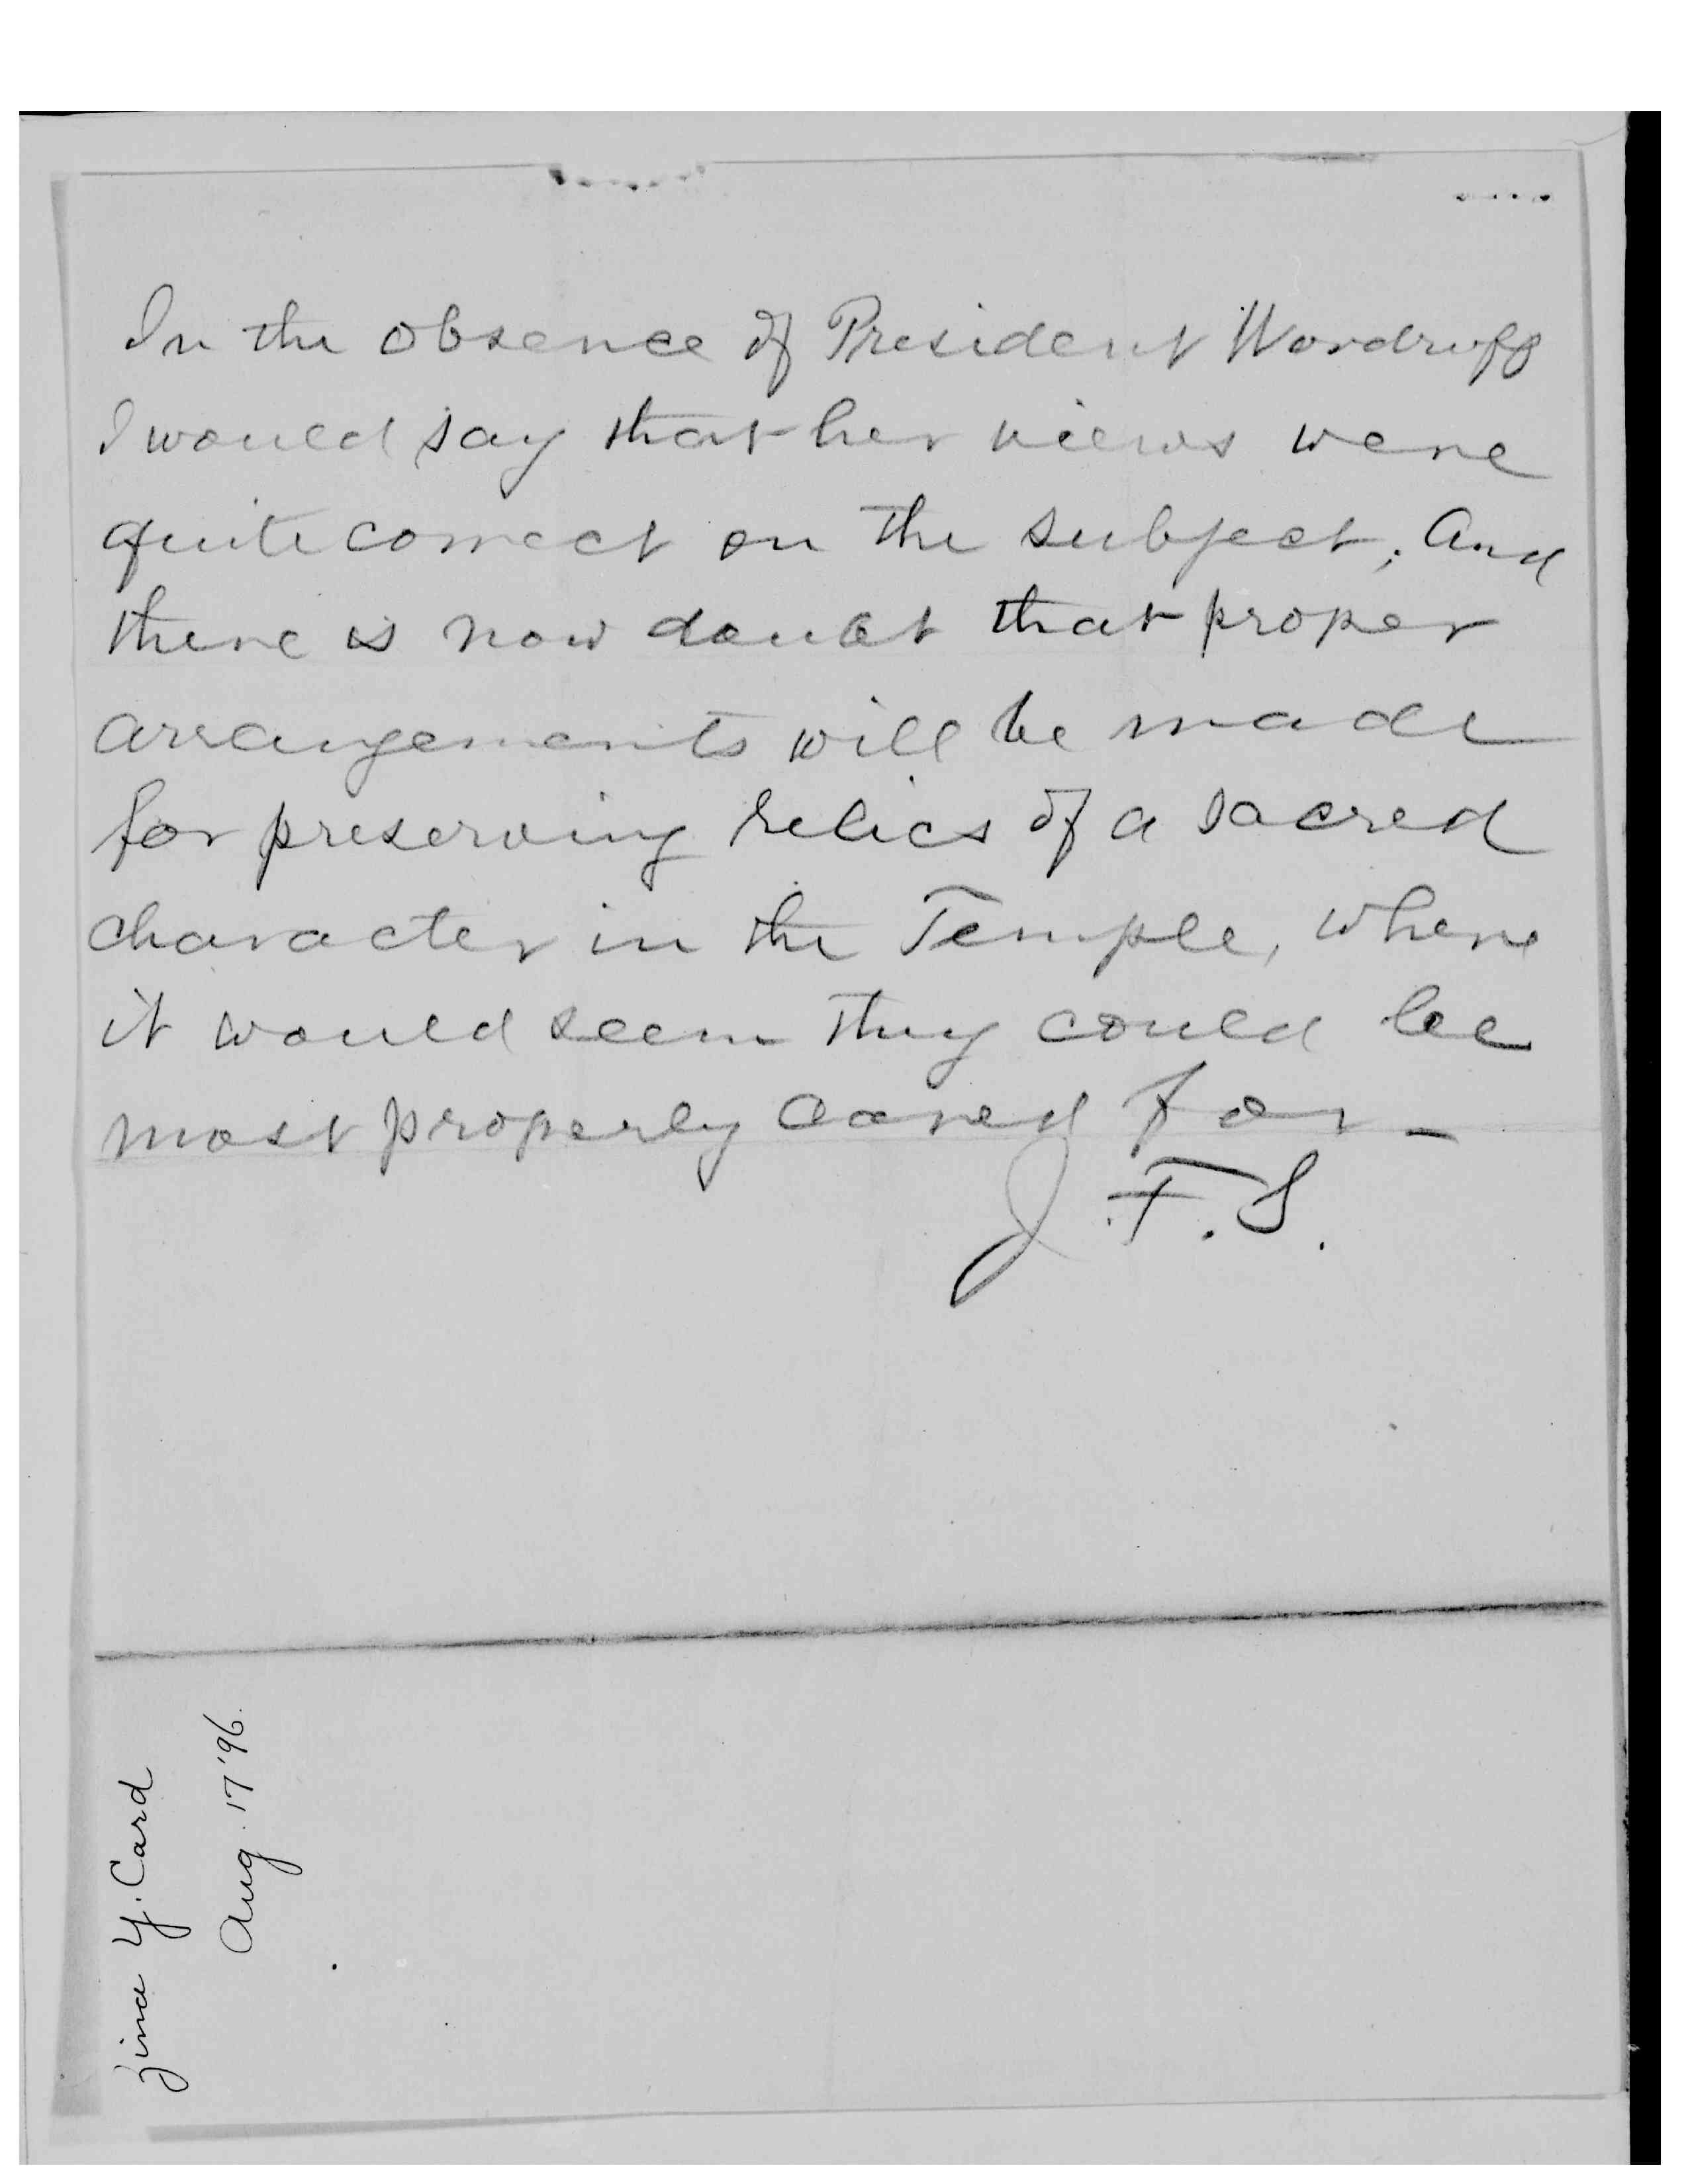 In the absence of President Woodruff
I would say that her views were
quite correct on the subject; And
there is now doubt that proper
arrangements will be made
for preserving relics of a sacred
character in the Temple, where
it would seem they could be
most properly cared for –
J. F. S.
Zina Y. Card
Aug. 17 '96.